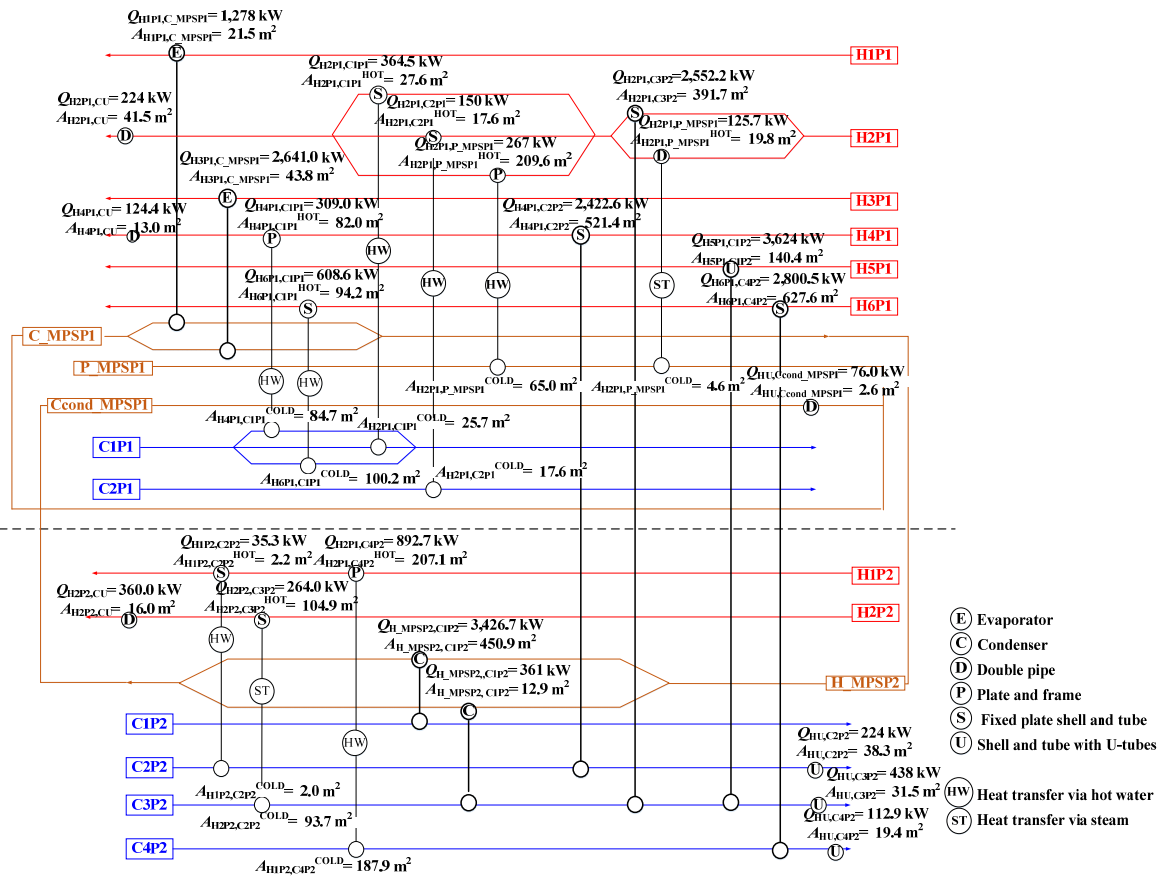 Q_H1P1,C_MPSP1= 1,278 kW
A_H1P1,C_MPSP1= 21.5 m²
E
H1P1
Q_H2P1,C1P1= 364.5 kW
A_H2P1,C1P1^HOT= 27.6 m²
S
Q_H2P1,C3P2=2,552.2 kW
A_H2P1,C3P2= 391.7 m²
S
Q_H2P1,CU= 224 kW
A_H2P1,CU= 41.5 m²
D
Q_H2P1,C2P1= 150 kW
A_H2P1,C2P1^HOT= 17.6 m²
S
Q_H2P1,P_MPSP1=125.7 kW
A_H2P1,P_MPSP1^HOT= 19.8 m²
D
H2P1
Q_H2P1,P_MPSP1= 267 kW
A_H2P1,P_MPSP1^HOT= 209.6 m²
P
Q_H3P1,C_MPSP1= 2,641.0 kW
A_H3P1,C_MPSP1= 43.8 m²
E
H3P1
Q_H4P1,CU= 124.4 kW
A_H4P1,CU= 13.0 m²
D
Q_H4P1,C1P1= 309.0 kW
A_H4P1,C1P1^HOT= 82.0 m²
P
Q_H4P1,C2P2= 2,422.6 kW
A_H4P1,C2P2= 521.4 m²
S
H4P1
Q_H5P1,C1P2= 3,624 kW
A_H5P1,C1P2= 140.4 m²
U
H5P1
HW
Q_H6P1,C1P1= 608.6 kW
A_H6P1,C1P1^HOT= 94.2 m²
S
HW
HW
ST
Q_H6P1,C4P2= 2,800.5 kW
A_H6P1,C4P2= 627.6 m²
S
H6P1
C_MPSP1
P_MPSP1
HW
HW
A_H2P1,P_MPSP1^COLD= 65.0 m²
A_H2P1,P_MPSP1^COLD= 4.6 m²
Q_HU,Ccond_MPSP1=76.0 kW
A_HU,Ccond_MPSP1= 2.6 m²
D
Ccond_MPSP1
A_H4P1,C1P1^COLD= 84.7 m²
A_H2P1,C1P1^COLD= 25.7 m²
C1P1
A_H6P1,C1P1^COLD= 100.2 m²
A_H2P1,C2P1^COLD= 17.6 m²
C2P1
Q_H1P2,C2P2= 35.3 kW
A_H1P2,C2P2^HOT= 2.2 m²
S
Q_H2P1,C4P2= 892.7 kW
A_H2P1,C4P2^HOT= 207.1 m²
P
H1P2
Q_H2P2,CU= 360.0 kW
A_H2P2,CU= 16.0 m²
D
Q_H2P2,C3P2= 264.0 kW
A_H2P2,C3P2^HOT= 104.9 m²
S
H2P2
HW
Q_H_MPSP2,C1P2= 3,426.7 kW
A_H_MPSP2, C1P2= 450.9 m²
C
Q_H_MPSP2,,C1P2= 361 kW
A_H_MPSP2, C1P2= 12.9 m²
C
ST
H_MPSP2
C1P2
HW
Q_HU,C2P2= 224 kW
A_HU,C2P2= 38.3 m²
U
C2P2
A_H1P2,C2P2^COLD= 2.0 m²
Q_HU,C3P2= 438 kW
A_HU,C3P2= 31.5 m²
U
C3P2
A_H2P2,C2P2^COLD= 93.7 m²
Q_HU,C4P2= 112.9 kW
A_HU,C4P2= 19.4 m²
U
C4P2
A_H1P2,C4P2^COLD= 187.9 m²
E Evaporator
C Condenser
D Double pipe
P Plate and frame
S Fixed plate shell and tube
U Shell and tube with U-tubes
HW Heat transfer via hot water
ST Heat transfer via steam